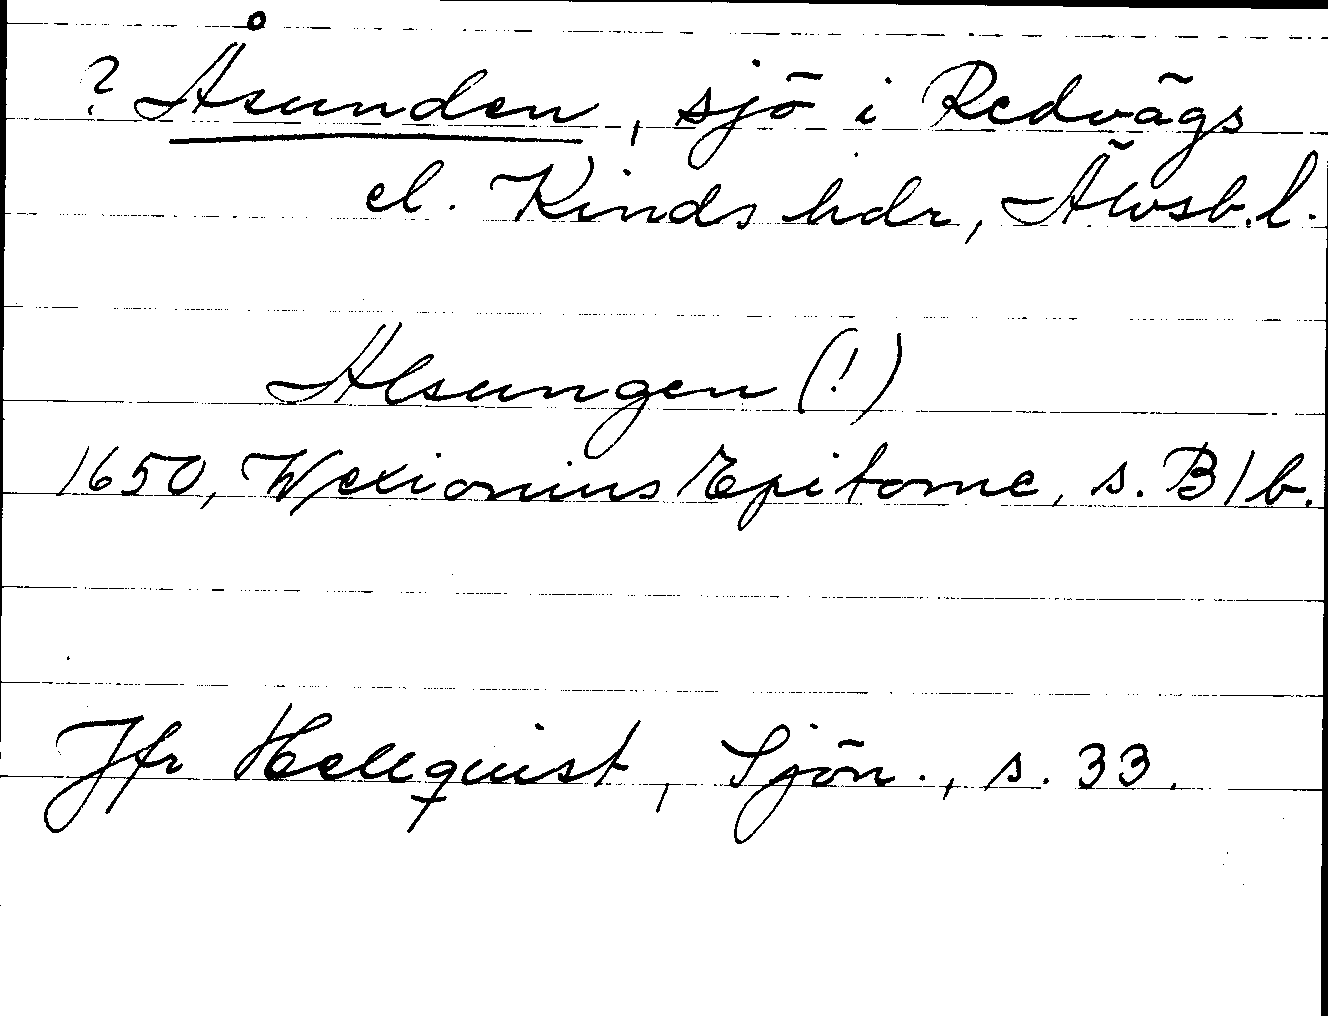 ? Åsunden, sjö i Redvägs
el. Kinds hdr, Älvsb. l.
Alsungen (!)
1650, Wexionius Epitome, s. B1b.
Jfr Hellquist, Sjön., s. 33.